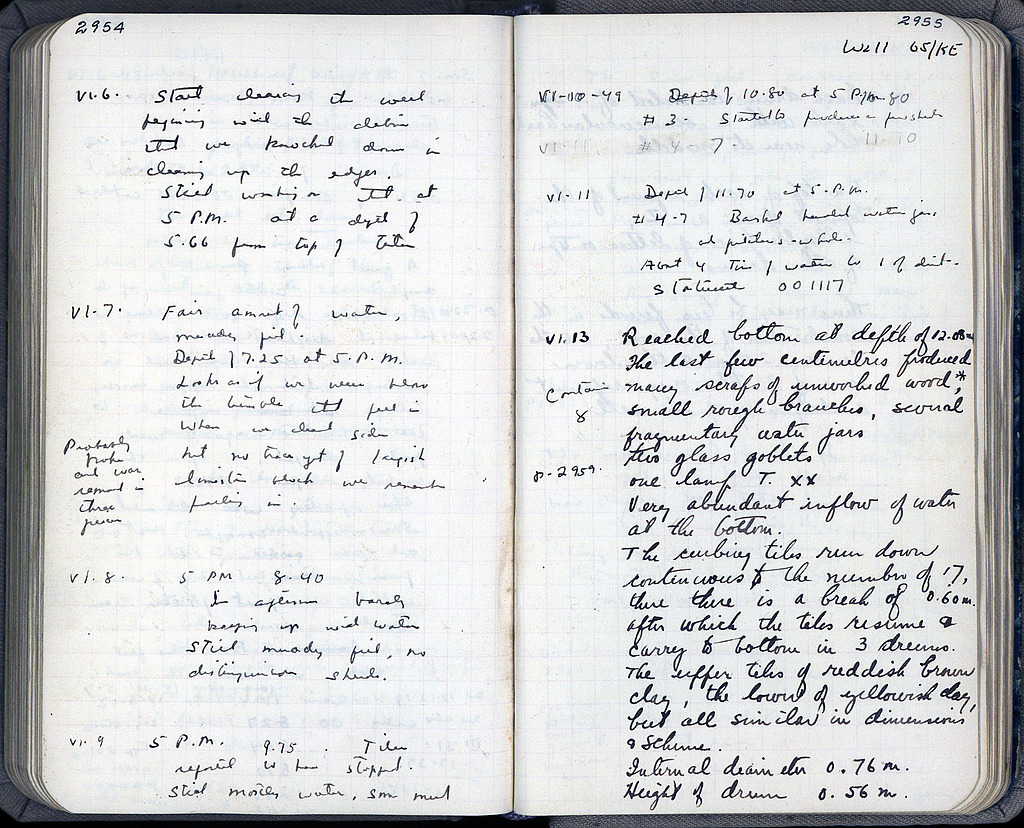 2954
VI.6. Start cleaning the well
beginning with the debris
that we knocked down in
cleaning up the edges.
Still working on that at
5 P.M. at a depth of
5.66 from top of tiles
VI-7. Fair amount of water,
muddy fill.
Depth of 7.25 at 5. P.M.
Looks as if we were below
the tumble that fell in
when we cleaned sides
but no trace yet of largish
limestone block we remember
falling in.
Probably
broke
and was
removed in
three
pieces
VI.8. 5 PM 8.40
In afternoon barely
keeping up with water
Still muddy fill, no
distinguishing sherds.
VI.9 5 P.M. 9.75. Tiles
reported to have stopped.
Still mostly water, some mud
2955
Well 65/KE
VI-10-49 Depth of 10.80 at 5 P.M.
# 3. Started to produce
VI-11 # 4 7. 11.70
VI-11 Depth of 11.70 at 5. P.M.
# 4-7 Basket handled water jars
About 4 Tins of water to 1 of dirt.
001117
VI.13 Reached bottom at depth of 12.08m
The last few centimetres produced
many scraps of unworked wood,*
small rough branches, several
fragmentary water jars
two glass goblets
one lamp T. XX
Very abundant inflow of water
at the bottom.
Contain
8
p-2959.
The curbing tiles run down
continuous to the number of 17,
then there is a break of 0.60m.
after which the tiles resume &
carry to bottom in 3 drums.
The upper tiles of reddish brown
clay, the lower of yellowish clay,
but all similar in dimensions
& scheme.
Internal diameter 0.76 m.
Height of drum 0.56 m.